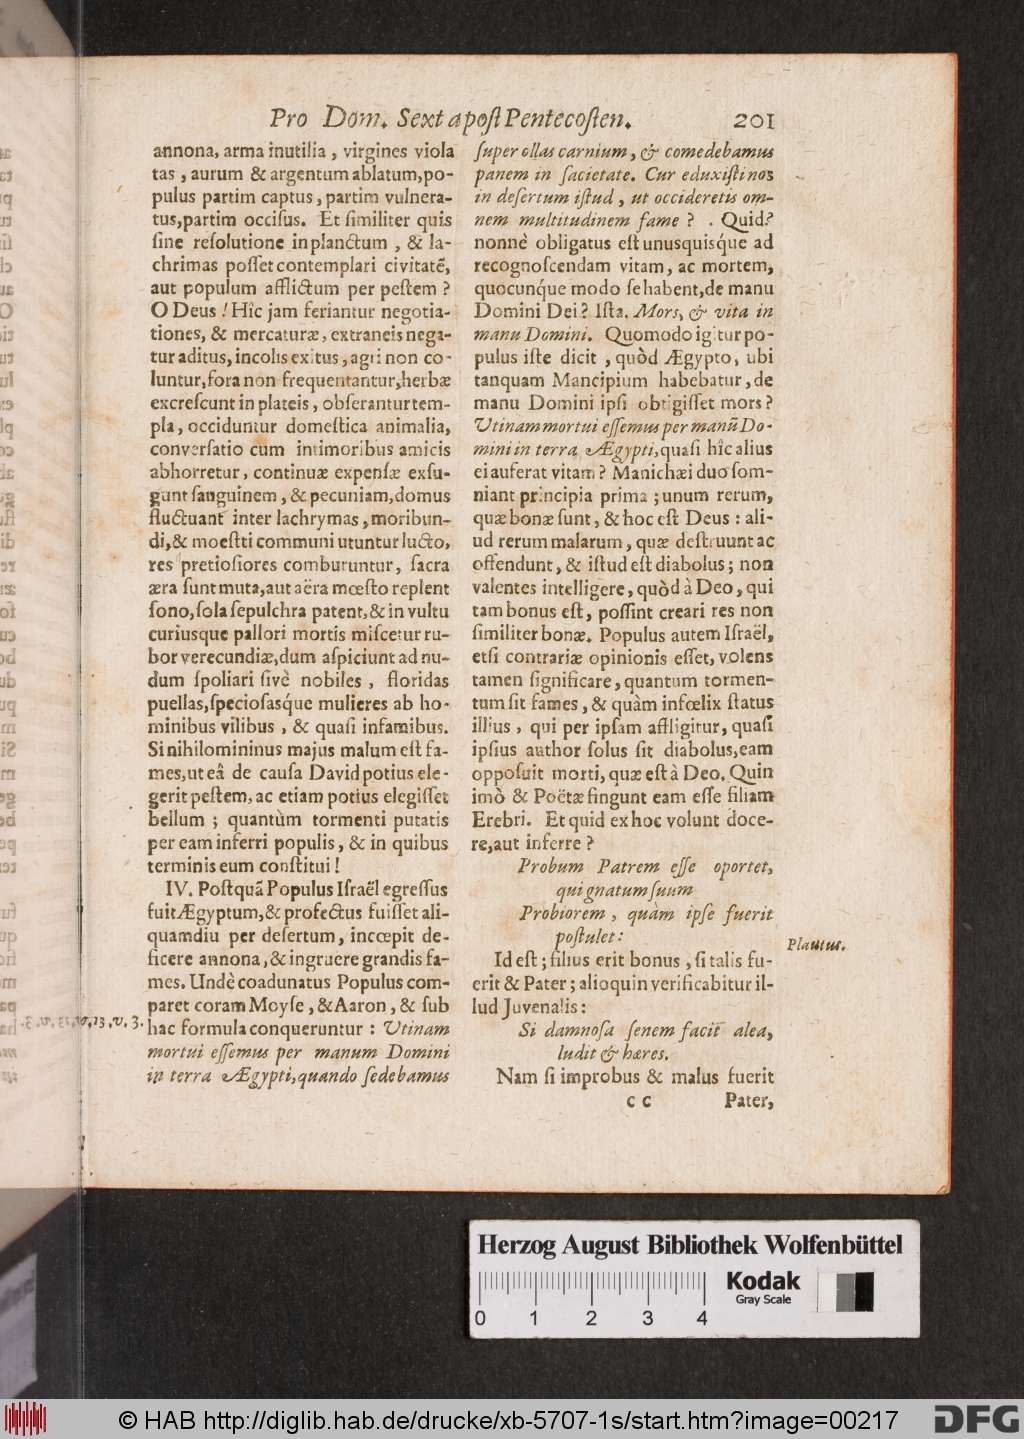 Pro Dom. Sext a poſt Pentecoſten. 201
annona, arma inutilia, virgines viola
tas, aurum & argentum ablatum, po-
pulus partim captus, partim vulnera-
tus, partim occiſus. Et ſimiliter quis
ſine reſolutione in planctum, & la-
chrimas poſſet contemplari civitatẽ,
aut populum afflictum per peſtem?
O Deus! Hîc jam feriantur negotia-
tiones, & mercaturæ, extraneis nega-
tur aditus, incolis exitus, agri non co-
luntur, fora non frequentantur, herbæ
excreſcunt in plateis, obſerantur tem-
pla, occiduntur domeſtica animalia,
converſatio cum intimoribus amicis
abhorretur, continuæ expenſæ exſu-
gunt ſanguinem, & pecuniam, domus
fluctuant inter lachrymas, moribun-
di, & moeſti communi utuntur lucto,
res pretioſiores comburuntur, ſacra
æra ſunt muta, aut aëra mœſto replent
ſono, ſola ſepulchra patent, & in vultu
curiusque pallori mortis miſcetur ru-
bor verecundiæ, dum aſpiciunt ad nu-
dum ſpoliari ſivè nobiles, floridas
puellas, ſpecioſasq́ue mulieres ab ho-
minibus vilibus, & quaſi infamibus.
Si nihilomininus majus malum eſt fa-
mes, ut eâ de cauſa David potius ele-
gerit peſtem, ac etiam potius elegiſſet
bellum; quantùm tormenti putatis
per eam inferri populis, & in quibus
terminis eum conſtitui!
IV. Poſtquã Populus Iſraël egreſſus
fuit Ægyptum, & profectus fuiſſet ali-
quamdiu per deſertum, incœpit de-
ficere annona, & ingruere grandis fa-
mes. Undè coadunatus Populus com-
paret coram Moyſe, & Aaron, & ſub
hac formula conqueruntur: Utinam
mortui eſſemus per manum Domini
in terra Ægypti, quando ſedebamus
ſuper ollas carnium, & comedebamus
panem in ſacietate. Cur eduxiſti nos
in deſertum iſtud, ut occideretis om-
nem multitudinem fame? . Quid?
nonnè obligatus eſt unusquisq́ue ad
recognoſcendam vitam, ac mortem,
quocunq́ue modo ſe habent, de manu
Domini Dei? Iſta. Mors, & vita in
manu Domini. Quomodo igitur po-
pulus iſte dicit, quòd Ægypto, ubi
tanquam Mancipium habebatur, de
manu Domini ipſi obtigiſſet mors?
Utinam mortui eſſemus per manũ Do-
mini in terra Ægypti, quaſi hîc alius
ei auferat vitam? Manichæi duo ſom-
niant principia prima; unum rerum,
quæ bonæ ſunt, & hoc eſt Deus: ali-
ud rerum malarum, quæ deſtruunt ac
offendunt, & iſtud eſt diabolus; non
valentes intelligere, quòd à Deo, qui
tam bonus eſt, poſſint creari res non
ſimiliter bonæ. Populus autem Iſraël,
etſi contrariæ opinionis eſſet, volens
tamen ſignificare, quantum tormen-
tum ſit fames, & quàm infœlix ſtatus
illius, qui per ipſam affligitur, quaſi
ipſius author ſolus ſit diabolus, eam
oppoſuit morti, quæ eſt à Deo. Quin
imò & Poëtæ fingunt eam eſſe filiam
Erebri. Et quid ex hoc volunt doce-
re, aut inferre?
Probum Patrem eſſe oportet,
qui gnatum ſuum
Probiorem, quàm ipſe fuerit
poſtulet:
Plautus.
Id eſt; filius erit bonus, ſi talis fu-
erit & Pater; alioquin verificabitur il-
lud Juvenalis:
Si damnoſa ſenem facit alea,
ludit & hæres.
Nam ſi improbus & malus fuerit
c c Pater,
Herzog August Bibliothek Wolfenbüttel
0 1 2 3 4
Kodak
Gray Scale
© HAB http://diglib.hab.de/drucke/xb-5707-1s/start.htm?image=00217
DFG